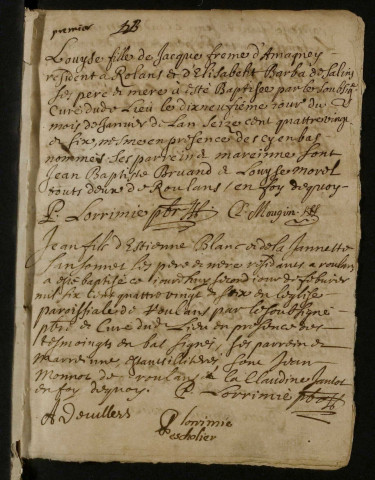 premier
Louyse fille de Jacque frene d'Amagney
resident a Rolans et d'Elisabeth Barba de Salins
ses pere et mere a esté Baptisee par le soubsig
Curé dudt Lieu le dixneufième iour du
mois de Janvier de Lan Seize cent quattre vingt
et six, en presence des cy en bas
nommes. Ses parrein & mareinne sont
Jean Baptiste Bruand & Louyse morel
touts deux de Roulans, en foy dequoy
P. Lorrimie pbr C. Mougin
Jean fils d'Estienne Blanc et de la Jannette
Sansonnet ses pere et mere residants a roulans
a esté baptisé ce iourdhuy second iour de febvrier
mil six cent quattre vingt et six en leglise
paroissiale de Roulans par le soubsigné
pbre et Curé dudt Lieu en presence des
tesmoings en bas signes, ses parrein et
marreinne, sont Jean
Monnot de roulans & la Claudine
en foy dequoy. P. Lorrimie pbr
A Devillers
P lorrimie
escholier